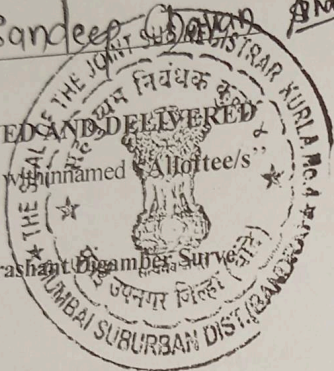 Sandeep Chavan
ED AND DELIVERED
withinnamed "Allottee/s"
rashant Digamber Surve
THE SEAL OF THE JOINT SUB REGISTRAR KURLA No. 4
MUMBAI SUBURBAN DIST. (BANDRA)
निबंधक
उपनगर जिल्हा